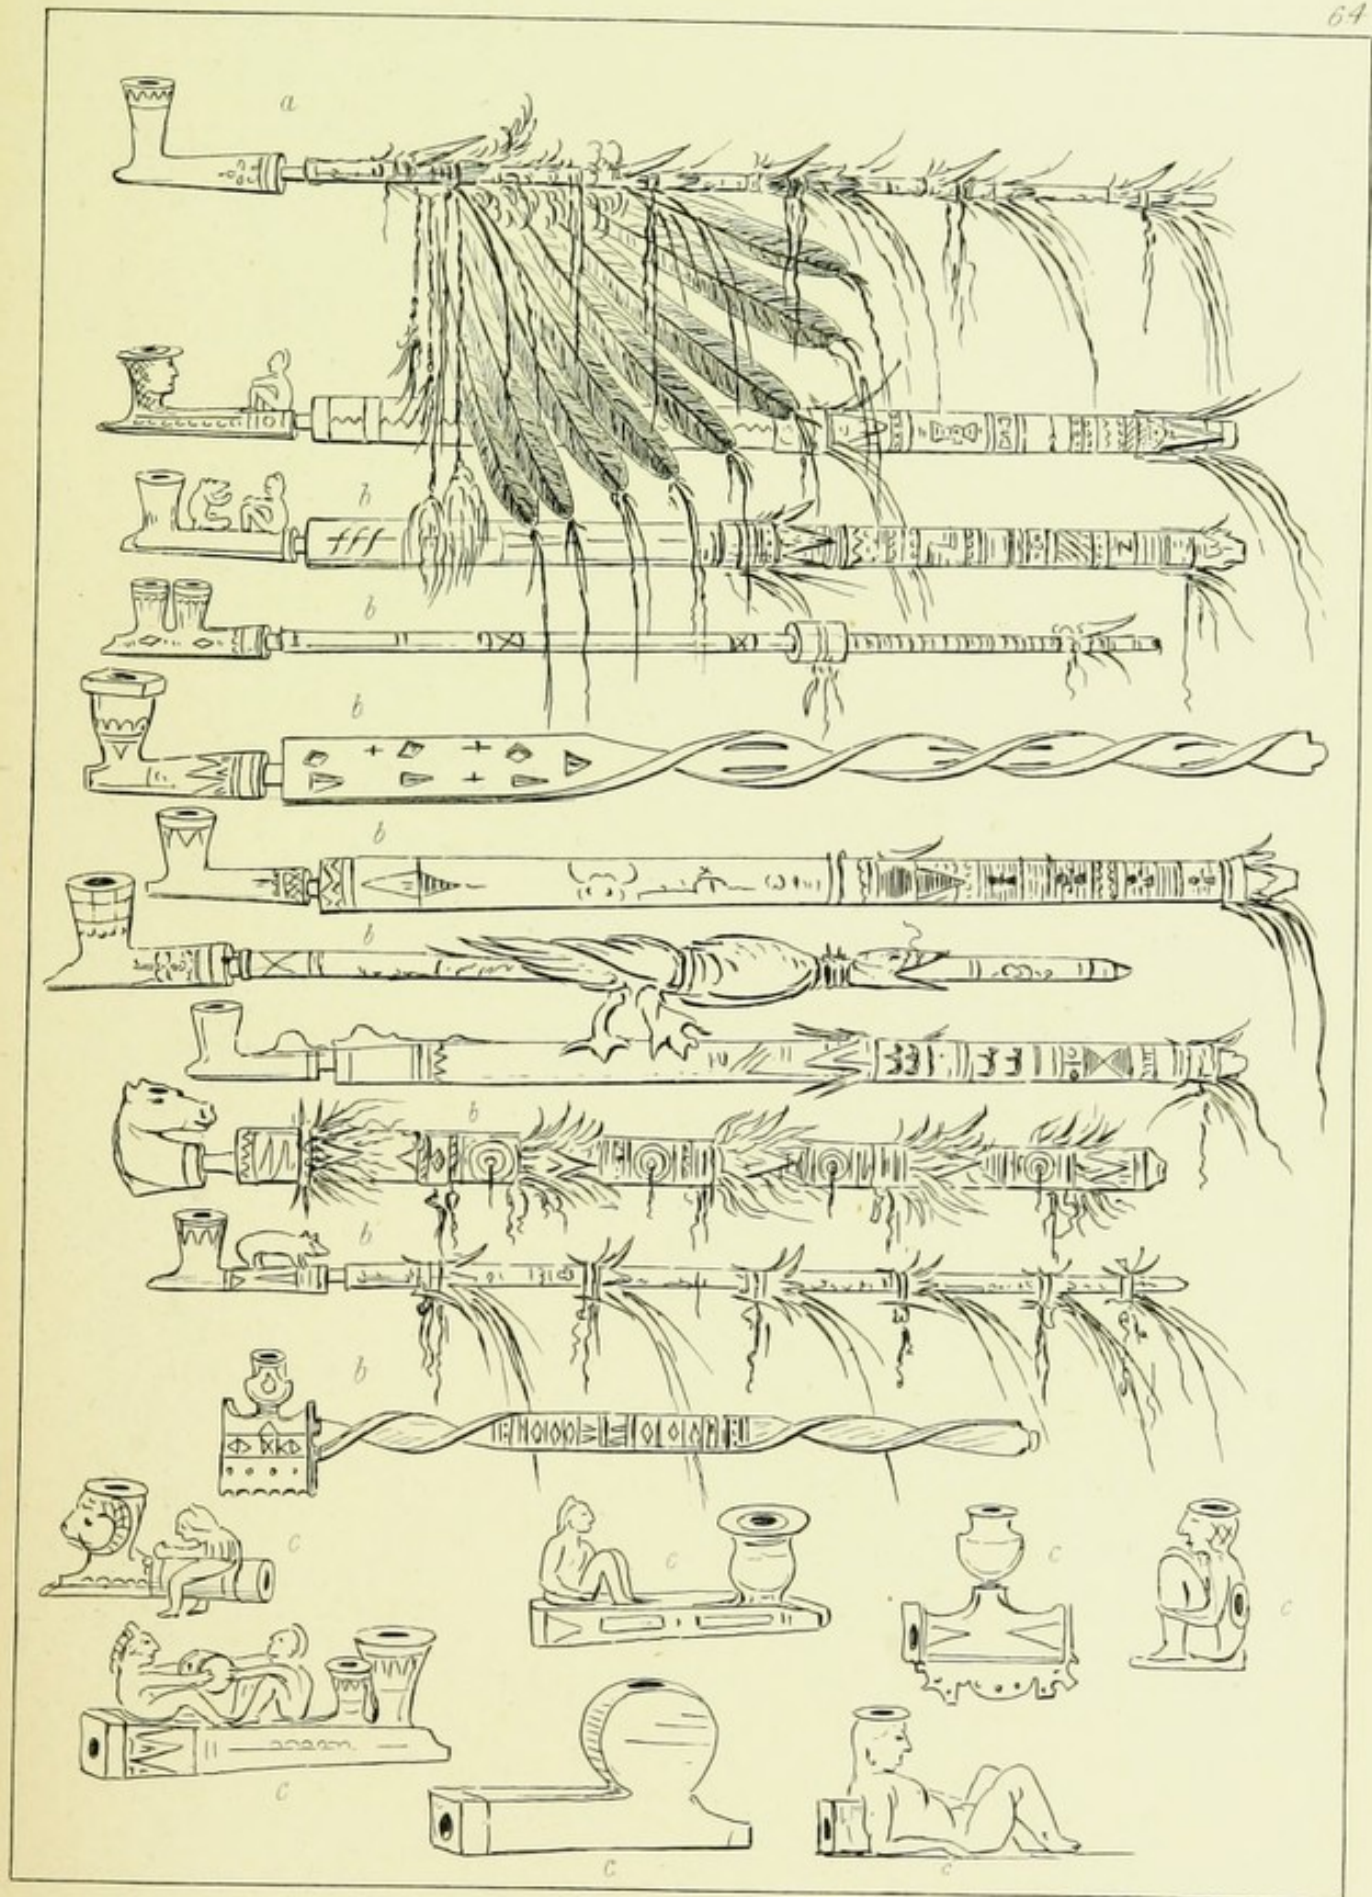 64
a
b
b
b
b
b
b
b
b
c
c
c
c
c
c
c